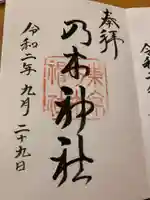 奉拝
乃木神社
令和二年 九月 二十九日